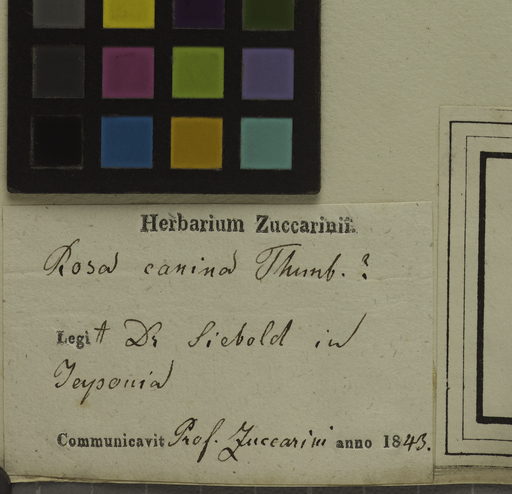 Herbarium Zuccarinii.
Rosa canina Thunb. ?
Legit Dr Siebold in
Jeyponia
Communicavit Prof. Zuccarini anno 1843.